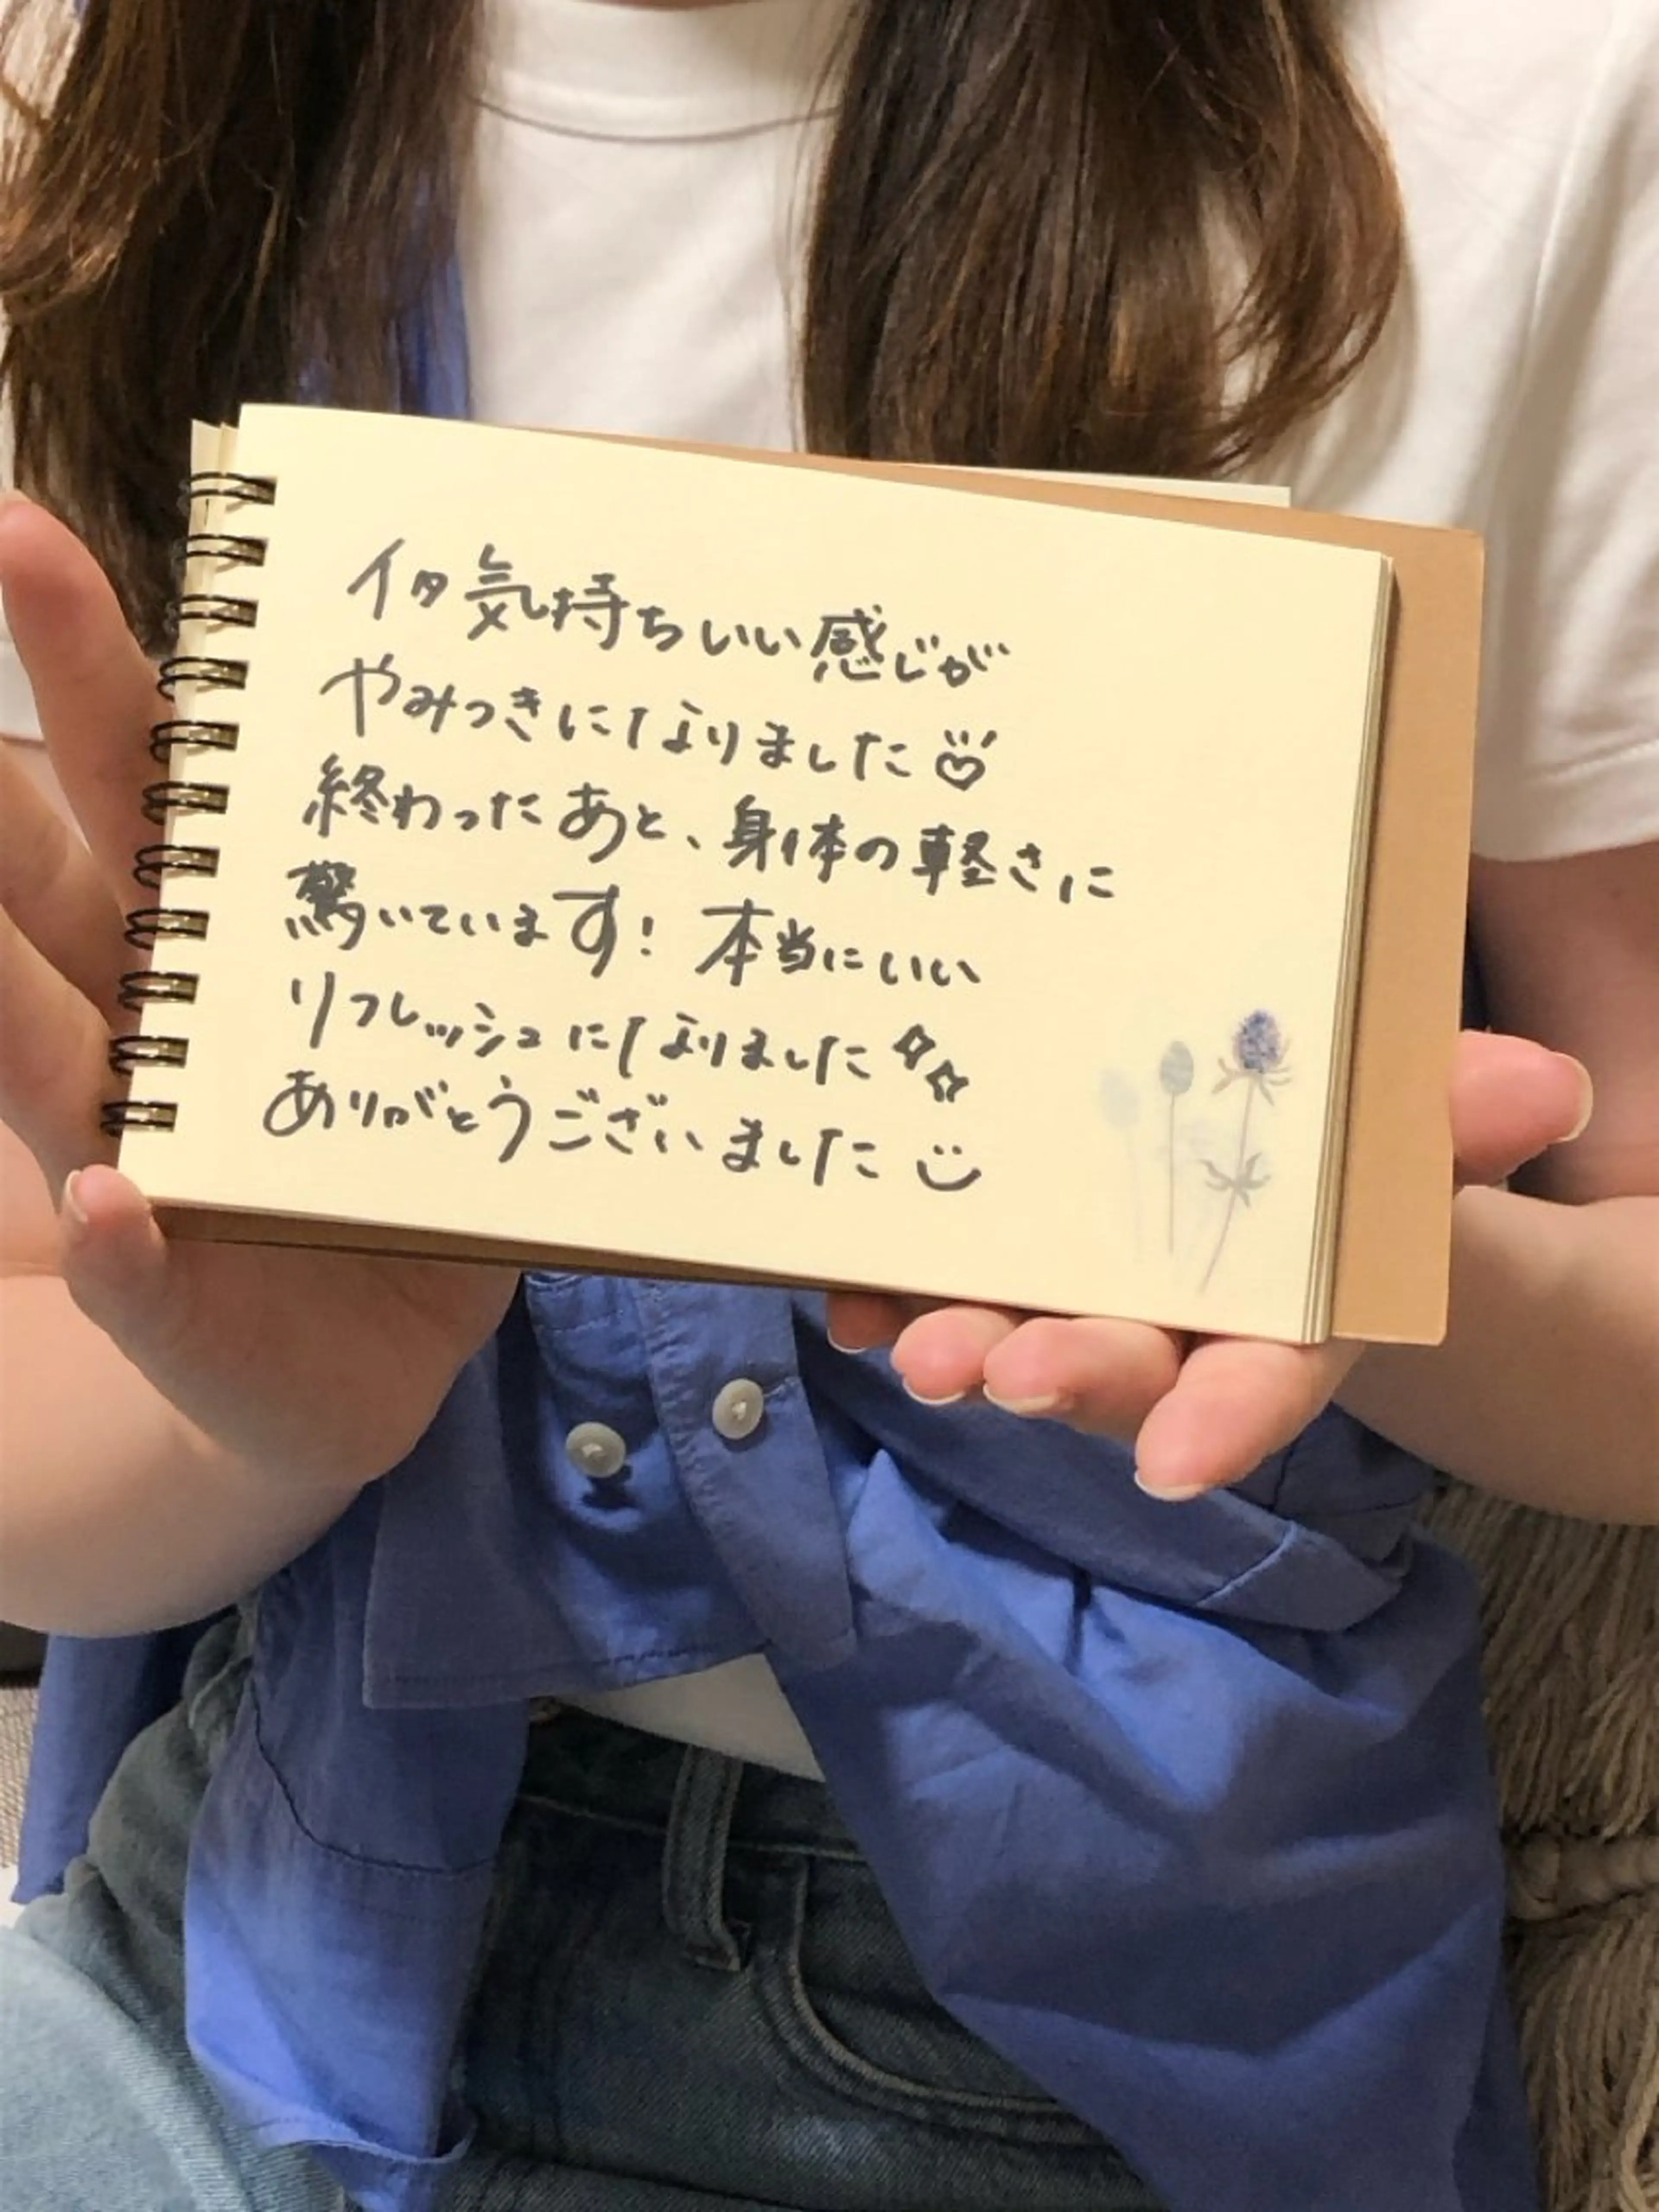 イタ気持ちいい感じが
やみつきになりました♡
終わったあと、身体の軽さに
驚いています! 本当にいい
リフレッシュになりました
ありがとうございました